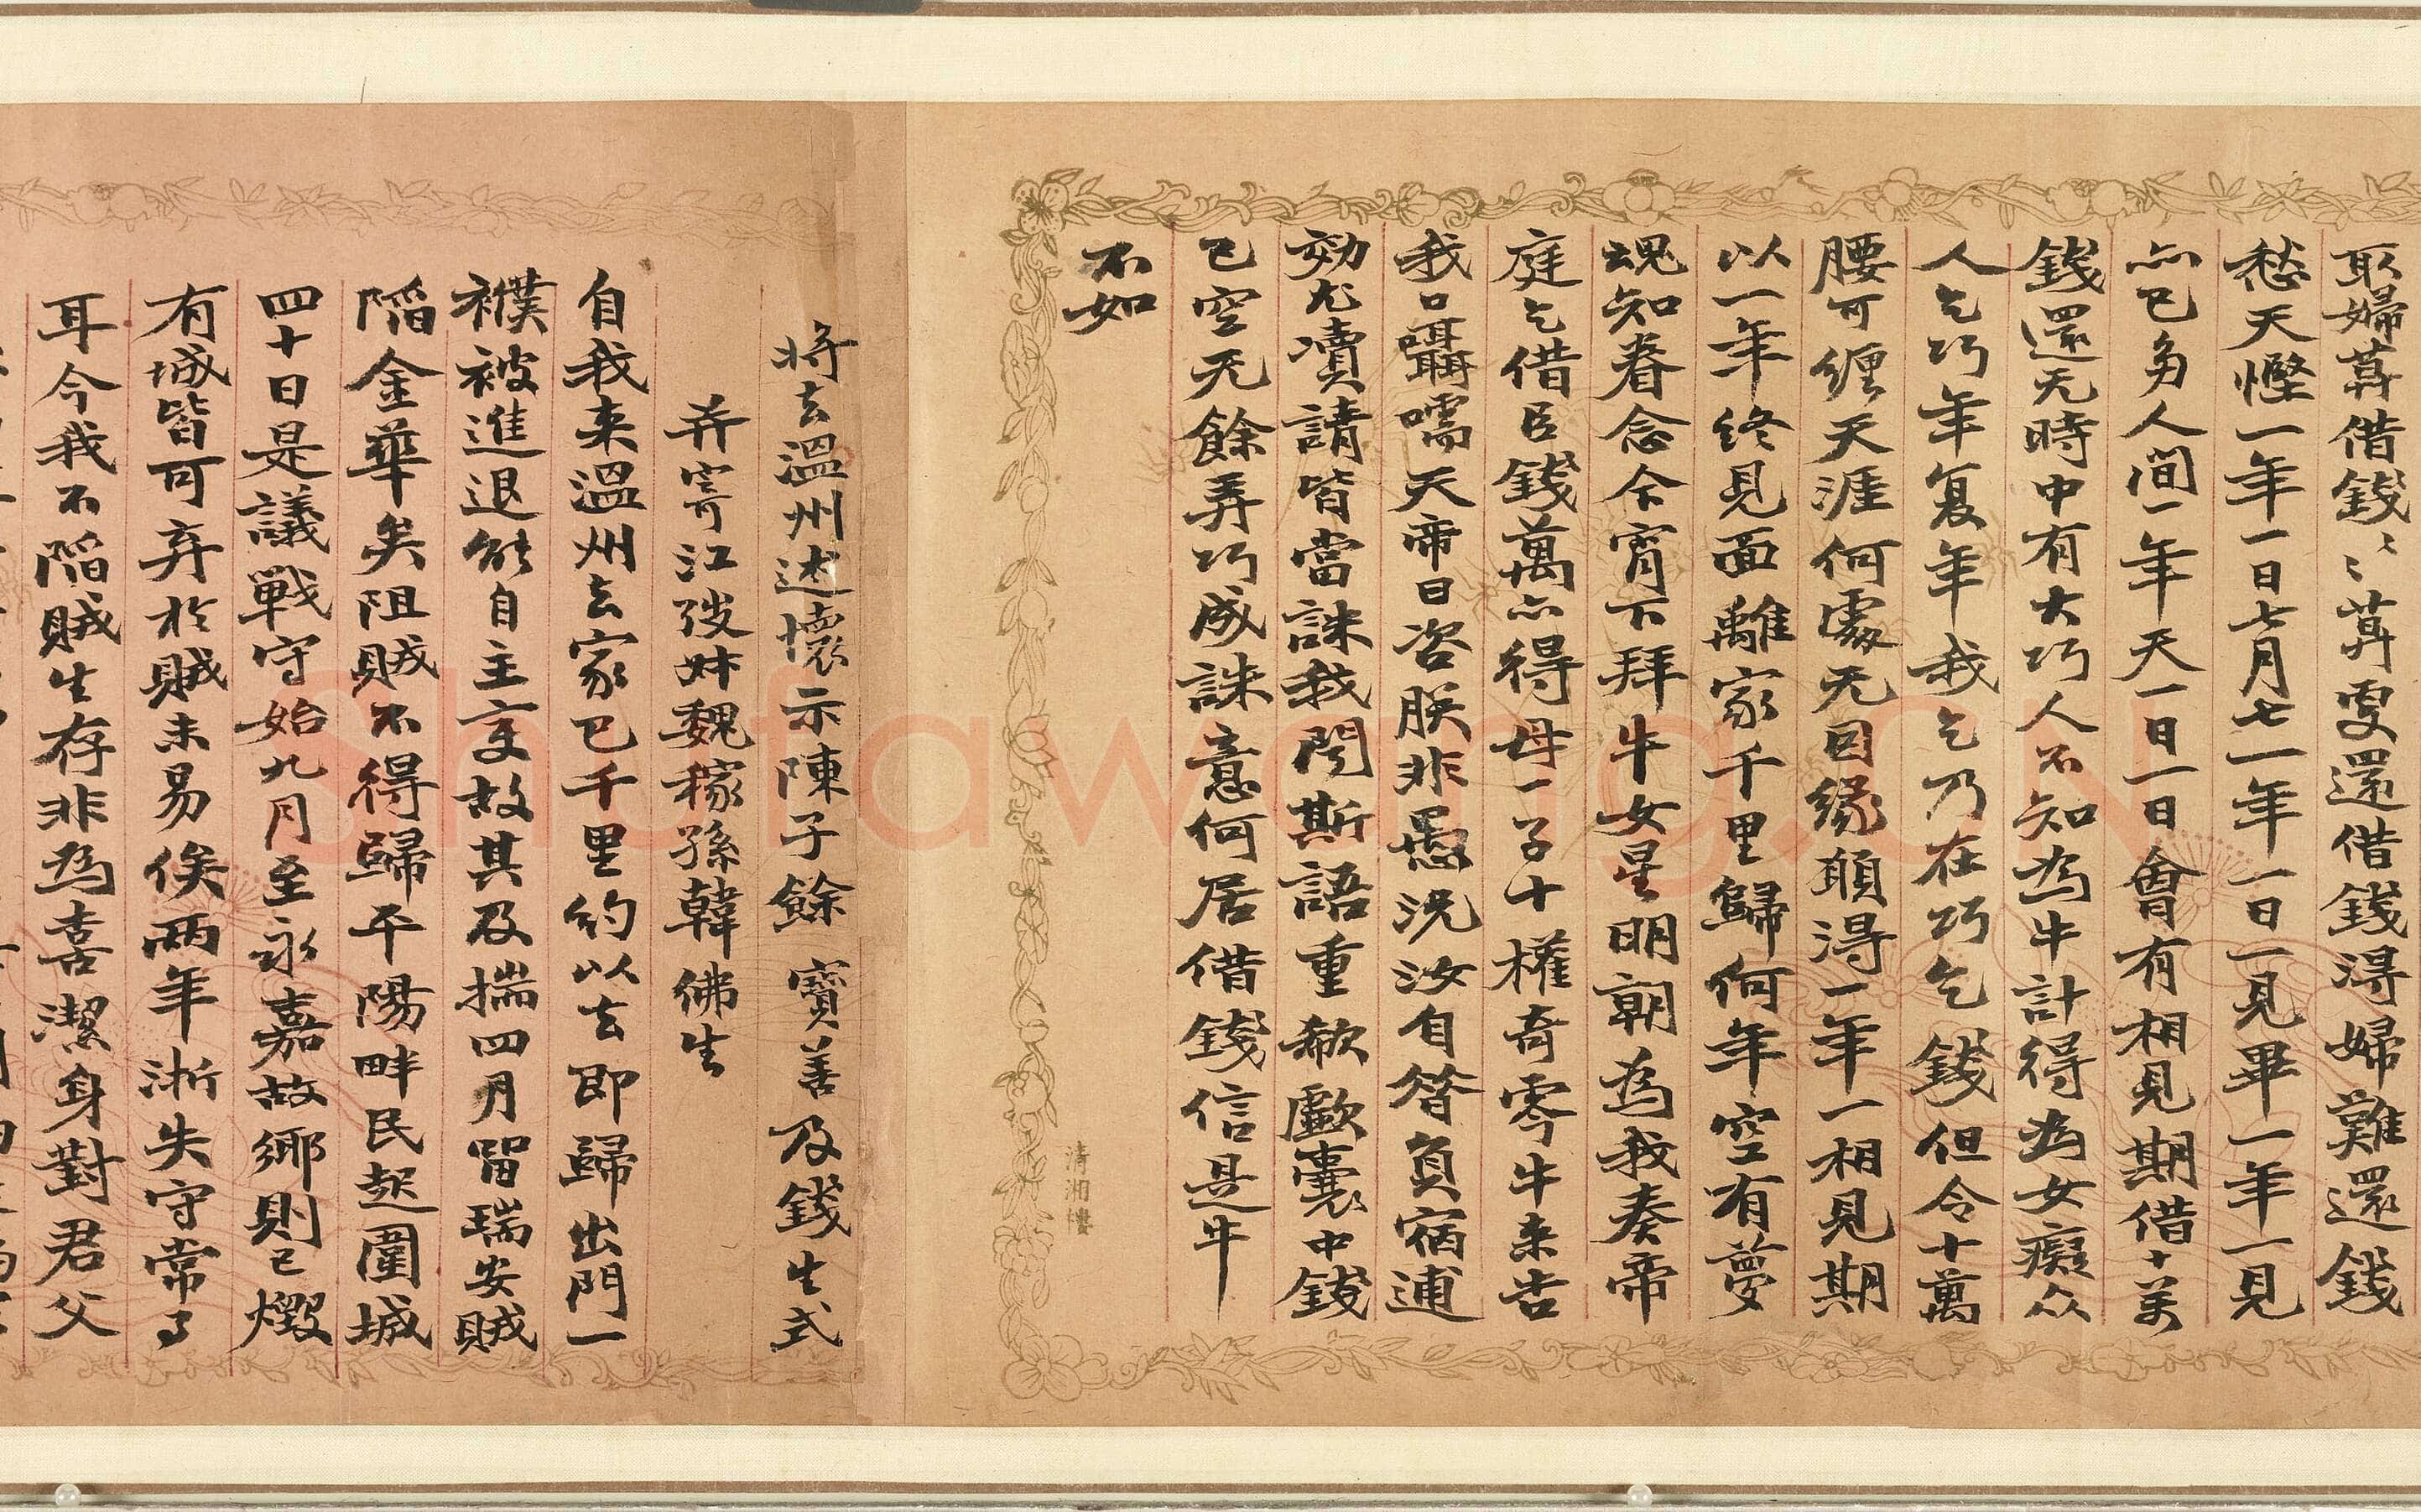 取婦莫借錢〻莫更還借錢得婦難還錢
愁天慳一年一日七月七一年一日一見畢一年一見
亦已多人間一年天一日一日會有相見期借十萬
錢還无時中有大巧人不知為牛計得為女癡众
人乞巧年复年我乞乃在巧乞錢但令十萬
腰可纏天涯何處无因緣願得一年一相見期
以一年終見面離家千里歸何年空有夢
魂知眷念今宵下拜牛女星明朝為我奏帝
庭乞借臣錢萬亦得母一子十權奇零牛来告
我口囁嚅天帝曰咨朕非愚況汝自督負宿逋
効尤瀆請皆當誅我聞斯語重欷歔囊中錢
已空无餘弄巧成誅意何居借錢信是牛
不如
清湘樓
将去溫州述懷示陳子餘 寶善及錢生式
并寄江弢妹魏稼孫韓佛生
自我来溫州去家已千里約以去即歸出門一
襆被進退能自主烹故其及揣四月留瑞安賊
陷金華矣阻賊不得歸平陽畔民起圍城
四十日是議戰守始九月至永嘉故鄉則已燬
有城皆可弃於賊未易俟兩年淅失守常了
耳今我不陷賊生存非為喜潔身對君父
Shufawang.CN